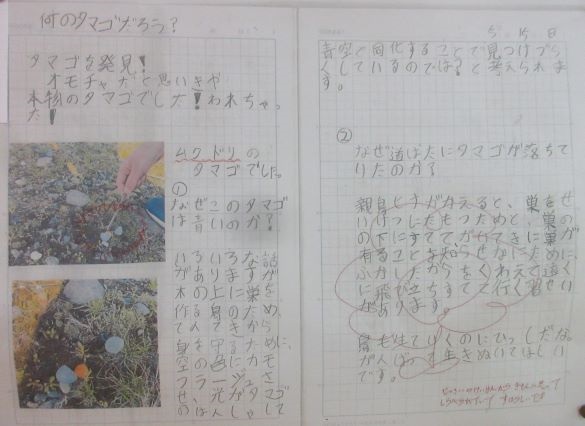 何のタマゴだろう？
タマゴを発見！
オモチャだと思いきや
本物のタマゴでした！われちゃっ
た！
ムクドリの
タマゴでした。
①
なぜこのタマゴ
は青いのか？
いろいろな話
がありますが
木の上に巣を
作る鳥のため、
てんてきから
身を守るために、
空の色にカモ
フラージュさ
せ、光がタマゴ
のはんしゃして
5 15 日
青空と同化することで見つけづら
くしているのでは？と考えられま
す。
②
なぜ道ばたにタマゴが落ちて
いたのか？
親鳥
巣をせ
いけつにたもつためと、巣の
の下にすてて、がいてきに巣が
有ることを知らせなために
ふかしたからをくわえて遠く
に飛び立ちすてに行く習せい
があります。
鳥も生
のにひっしだな。
がんばって生きぬいてほしい
です。